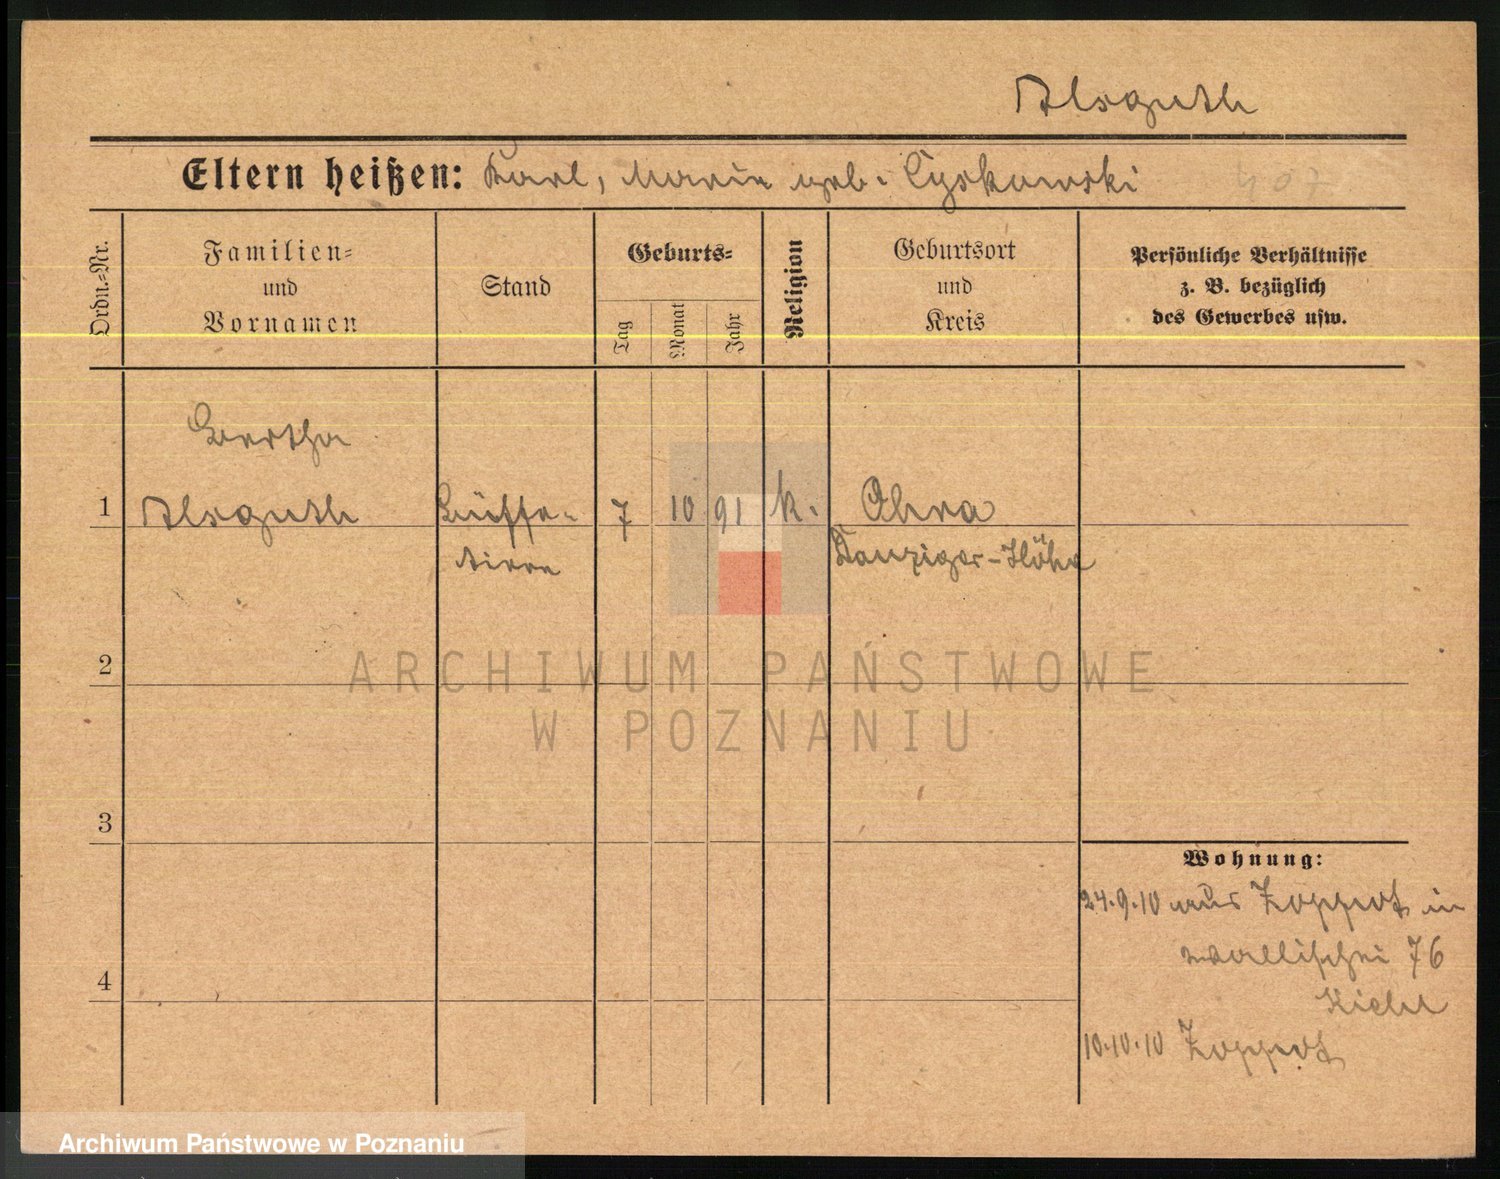 Alsguth
Eltern heißen: Karl, Marie geb. Cyskowski 407
Ordn.=Nr.
Familien=
und
Vornamen
Stand
Geburts=
Tag
Monat
Jahr
Religion
Geburtsort
und
Kreis
Persönliche Verhältnisse
z. B. bezüglich
des Gewerbes usw.
Bertha
1 Alsguth Büffe- 7 10 91 k. Ohra
tiere Danziger-Höhe
ARCHIWUM PAŃSTWOWE
W POZNANIU
2
3
Wohnung:
24.9.10 aus Zoppot in
Wallischei 76
4
10.10.10 Zoppot
Archiwum Państwowe w Poznaniu